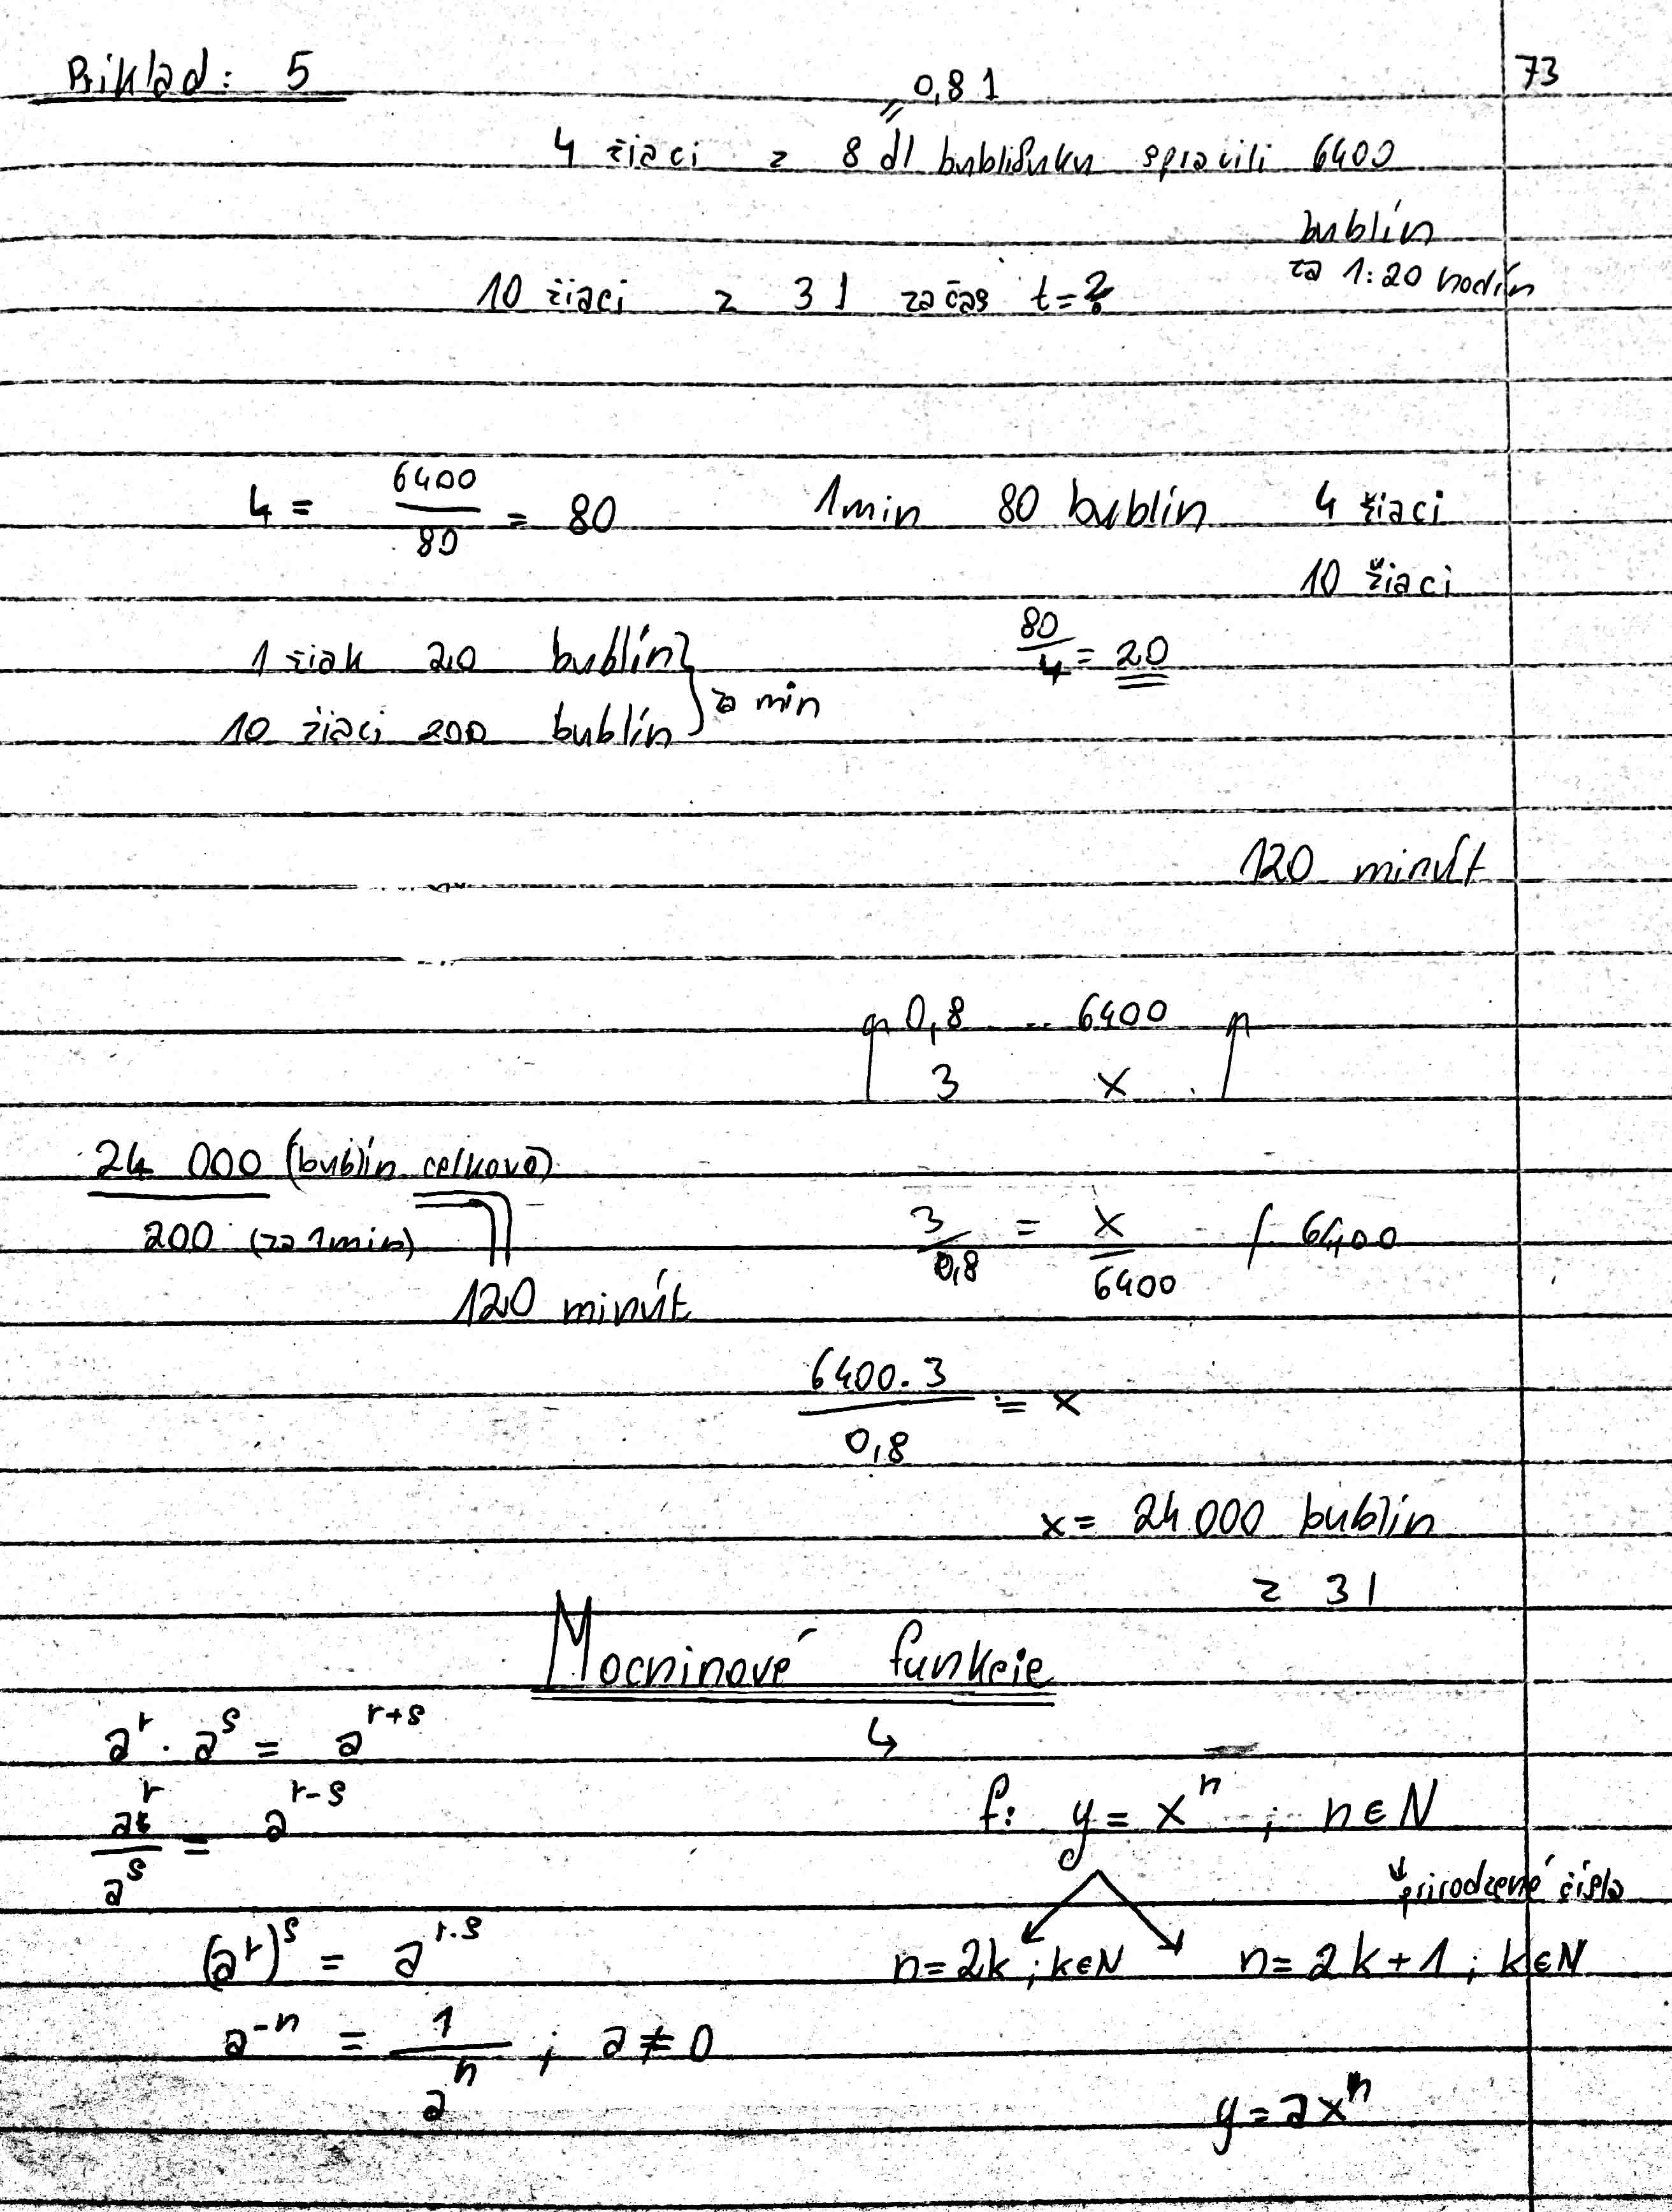 Príklad: 5
73
0,8 l
4 žiaci z 8 dl bublifuku spravili 6400
bublín
za 1:20 hodín
10 žiaci z 3 l za čas t=?
4 = 6400/80 = 80 1min 80 bublín 4 žiaci
10 žiaci
1 žiak 20 bublín 80/4 = 20
10 žiaci 200 bublín } za min
120 minút
0,8 .. 6400
3 x
24 000 (bublín celkovo)
200 (za 1min)
120 minút
3/0,8 = x/6400 /· 6400
6400.3/0,8 = x
x = 24 000 bublín
z 3 l
Mocninové funkcie
↳
a^r · a^s = a^(r+s)
a^r/a^s = a^(r-s)
f: y = x^n ; n∈N
prirodzené čísla
(a^r)^s = a^(r.s)
n=2k ; k∈N n=2k+1 ; k∈N
a^-n = 1/a^n ; a≠0
y=ax^n